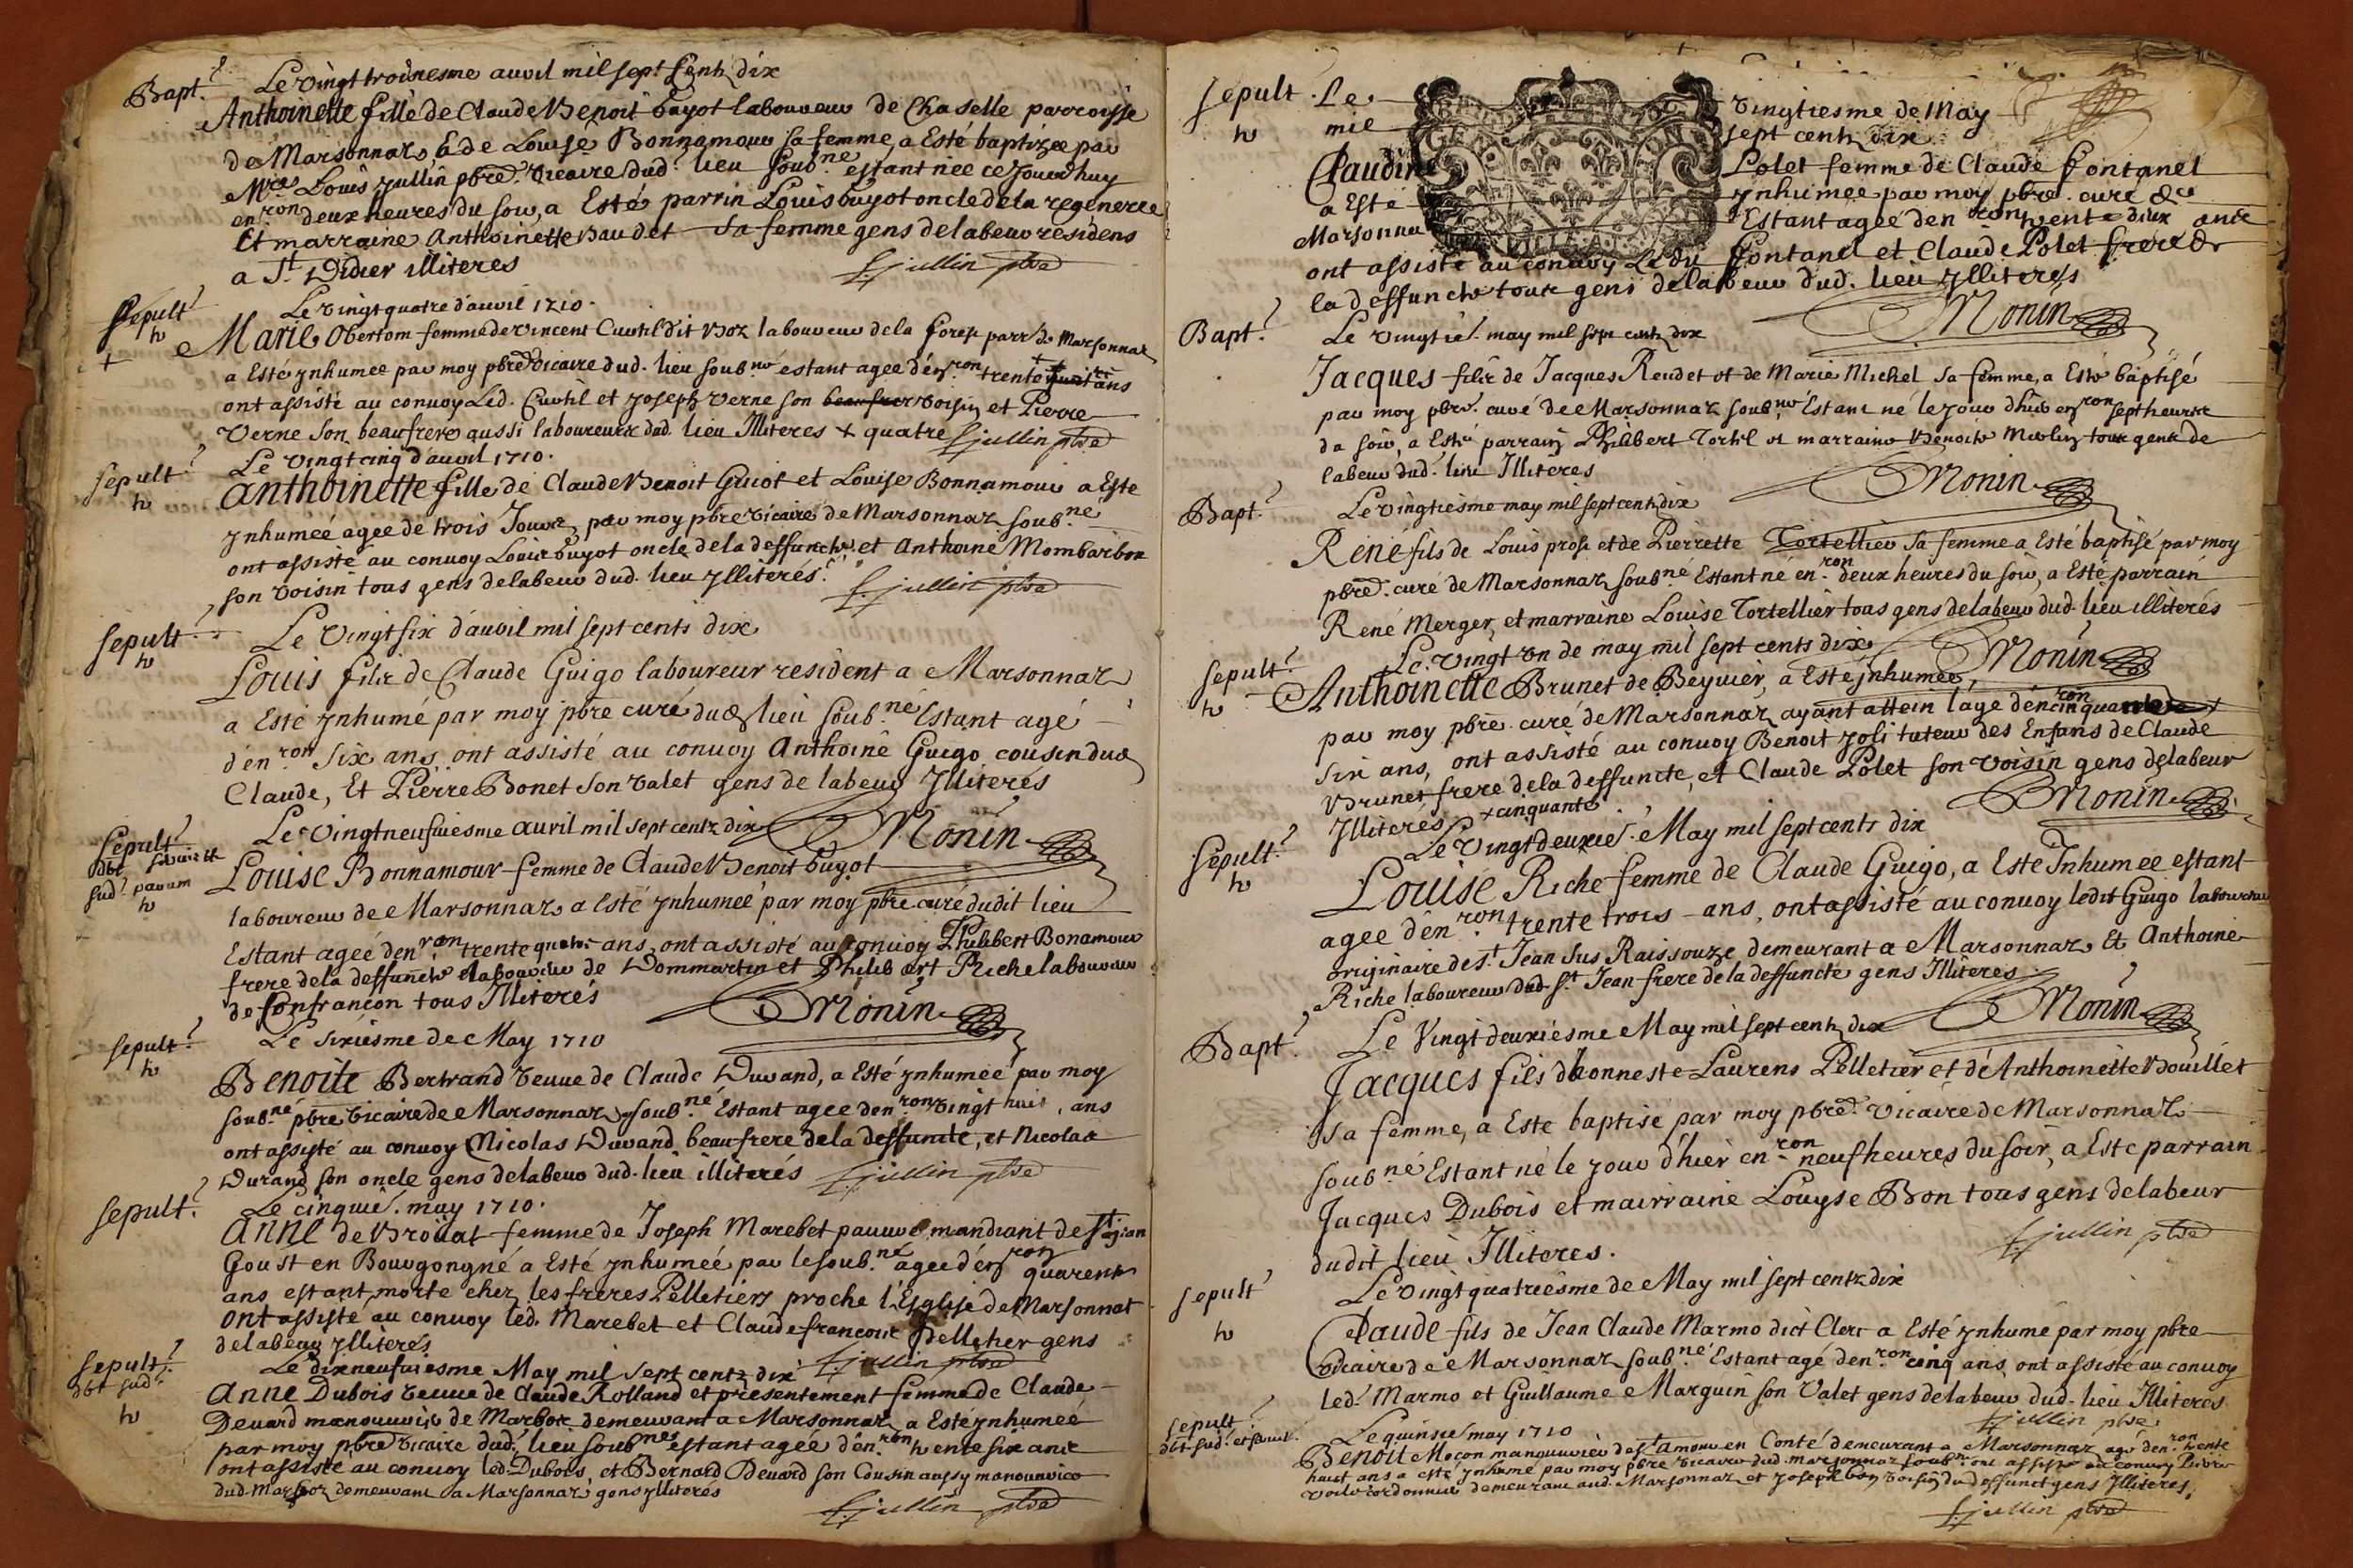 Bapt.
Le vingt troiziesme avril mil sept cents dix
Anthoinette fille de Claude Benoit Guyot laboureur de Chaselle parroisse
de Marsonnas, & de Louise Bonnamour sa femme, a Esté baptizée par
Mre Louis Jullin pbre. vicaire dud. lieu soub.né estant née ce Jourdhuy
en.ron deux heures du soir, a Esté parrin Louis Guyot oncle de la regenerée
Et marraine Anthoinette Baudet sa femme gens de labeur residens
a St. Didier illiteres
L. jullin pbre
Sepult.
Le vingt quatre d'avril 1710.
Marie Obertom femme de Vincent Curtil dit Boz laboureur de la forest parr. de Marsonnas
a Esté ynhumee par moy pbre vicaire dud. lieu soub.né estant agee d'en.ron trente ans
ont assisté au convoy Led. Curtil et Joseph Verne son voisin et Pierre
Verne son beaufrere aussi laboureurs dud. lieu Illiteres + quatre L. jullin pbre
sepult
Le vingt cinq d'avril 1710.
Anthoinette fille de Claude Benoit Guiot et Louise Bonnamour a Esté
ynhumeé agee de trois Jours, par moy pbre vicaire de Marsonnaz soub.né
ont assisté au convoy Louis Guyot oncle de la deffuncte et Anthoine Mombarbon
son voisin tous gens de labeur dud. lieu ylliterés. L. jullin pbre
sepult
Le vingt six d'avril mil sept cents dix
Louis fils de Claude Guigo laboureur resident a Marsonnaz
a Esté ynhumé par moy pbre curé dud lieu soub.né Estant agé
d'en.ron six ans, ont assisté au convoy Anthoine Guigo cousin dud
Claude, Et Pierre Bonet son valet gens de labeur Illiteres
Monin
Sepult.
Le vingt neufviesme avril mil sept centz dix
Louise Bonnamour femme de Claude Benoit Guyot
laboureur de Marsonnaz a Esté ynhumeé par moy pbre curé dudit lieu
Estant ageé d'en.ron trente quatre ans, ont assisté au convoy Philibert Bonamour
frere de la deffuncte laboureur de Dommartin et Philibert Riche laboureur
de Confrancon tous Illiterés
Monin
sepult.
Le sixiesme de May 1710
Benoite Bertrand veuve de Claude Durand, a Esté ynhumeé par moy
soub.né pbre vicaire de Marsonnaz soub.né Estant agee d'en.ron vingt huit ans
ont assisté au convoy Nicolas Durand beaufrere de la deffuncte, et Nicolas
Durand son oncle gens de labeur dud. lieu illiterés L. jullin pbre
sepult.
Le cinquié. may 1710.
Anne de Broüat femme de Joseph Marebet pauvre mandiant de St. Jian
Goust en Bourgongné a Esté ynhumeé par le soub.né agee d'en.ron quarente
ans estant morte chez les freres Pelletiers proche l'Esglise de Marsonnat
ont assisté au convoy led. Marebet et Claude francois Pelletier gens
de labeur ylliterés L. jullin pbre
Sepult.
Le dixneufviesme May mil sept centz dix
Anne Dubois veuve de Claude Rolland et presentement femme de Claude
Devard manouvrier de Marboz demeurant a Marsonnaz a Esté ynhumeé
par moy pbre vicaire dud. lieu soub.né estant agée d'en.ron trente six ans
ont assisté au convoy led. Dubois, et Bernard Devard son Cousin aussy manouvrier
dud. Marboz demeurant a Marsonnaz gens ylliterés
L. jullin pbre
sepult. Le vingtiesme de May
mil sept centz dix
Claudine Polet femme de Claude Fontanel
a Esté ynhumee par moy pbre. curé de
Marsonna Estant ageé d'en.ron trente deux ans
ont assisté au convoy Led. Fontanel et Claude Polet frere de
la deffuncte tous gens de labeur dud. lieu ylliterés
Monin
Bapt.
Le vingtié. may mil sept centz dix
Jacques fils de Jacques Reudet et de Marie Michel sa femme, a Esté baptisé
par moy pbre. curé de Marsonnaz soub.né Estant né le jour d'huy en.ron sept heures
du soir, a Esté parrain Philibert Tortel et marraine Benoite Merlin tous gens de
labeur dud. lieu Illiteres
Monin
Bapt.
Le vingtiesme may mil sept centz dix
René fils de Louis prost et de Pierrette Tortellier sa femme a Esté baptisé par moy
pbre. curé de Marsonnaz soub.né Estant né en.ron deux heures du soir, a Esté parrain
René Merger, et marraine Louise Tortellier tous gens de labeur dud. lieu illiterés
Monin
sepult.
Le vingt un de may mil sept cents dix
Anthoinette Brunet de Beyvier, a Esté ynhumeé,
par moy pbre. curé de Marsonnaz ayant attein l'age d'en.ron
six ans, ont assisté au convoy Benoit Joli tuteur des Enfans de Claude
Brunet frere de la deffuncte, et Claude Polet son voisin gens de labeur
Illiterés + cinquante
Monin
Sepult.
Le vingt deuxié. May mil sept cents dix
Louise Riche femme de Claude Guigo, a Esté Inhumee estant
agee d'en.ron trente trois ans, ont assisté au convoy ledit Guigo laboureur
originaire de St. Jean sus Raissouze demeurant a Marsonnaz, Et Anthoine
Riche laboureur dud. St. Jean frere de la deffuncte gens Illiteres
Monin
Bapt.
Le Vingt deuxiesme May mil sept centz dix
Jacques fils d'honneste Laurens Pelletier et d'Anthoinette Bouillet
sa femme, a Esté baptisé par moy pbre. vicaire de Marsonnaz
soub.né Estant né le jour d'hier en.ron neuf heures du soir, a Esté parrain
Jacques Dubois et mairraine Louyse Bon tous gens de labeur
dudit lieu Illiteres.
L. jullin pbre
sepult
Le vingt quatriesme de May mil sept centz dix
Claude fils de Jean Claude Marmo dict Clerc a Esté ynhumé par moy pbre
vicaire de Marsonnaz soub.né Estant agé d'en.ron cinq ans, ont assisté au convoy
led. Marmo et Guillaume Marguin son valet gens de labeur dud. lieu Illiteres
L. jullin pbre
sepult
Le quinsié may 1710
Benoit Mocon manouvrier de St. Amour en Conté demeurant a Marsonnaz agé d'en.ron trente
huict ans a esté ynhumé par moy pbre vicaire dud. marsonnaz soub.né ont assisté au convoy Pierre
cordonnier demeurant aud. Marsonnaz et Joseph bon voisin du deffunct gens Illiteres,
L. jullin pbre